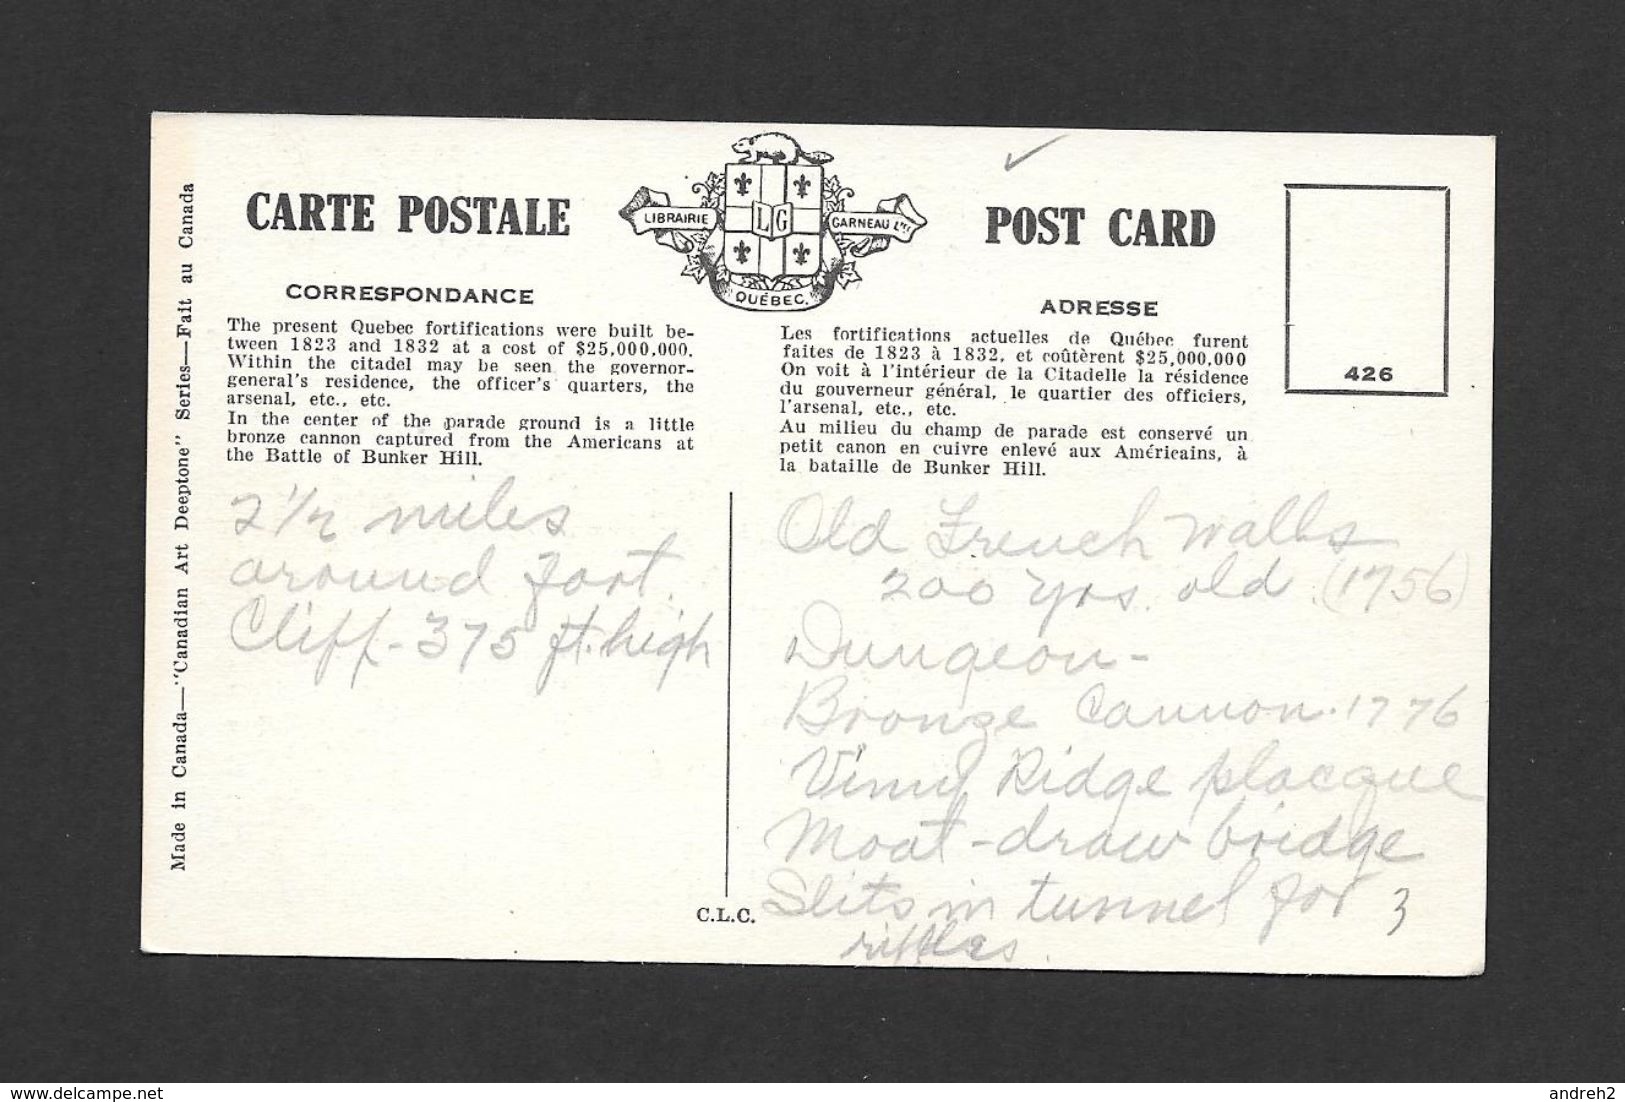 CARTE POSTALE
LIBRAIRIE
LG
GARNEAU Ltée
QUÉBEC.
POST CARD
CORRESPONDANCE
The present Quebec fortifications were built be-
tween 1823 and 1832 at a cost of $25,000,000.
Within the citadel may be seen the governor-
general's residence, the officer's quarters, the
arsenal, etc., etc.
In the center of the parade ground is a little
bronze cannon captured from the Americans at
the Battle of Bunker Hill.
ADRESSE
Les fortifications actuelles de Québec furent
faites de 1823 à 1832, et coûtèrent $25,000,000
On voit à l'intérieur de la Citadelle la résidence
du gouverneur général, le quartier des officiers,
l'arsenal, etc., etc.
Au milieu du champ de parade est conservé un
petit canon en cuivre enlevé aux Américains, à
la bataille de Bunker Hill.
426
2 1/2 miles
around fort.
Cliff - 375 ft. high
Old French walls
200 yrs. old. (1756)
Dungeon -
Bronze Cannon. 1776
Vimy Ridge placque
Moat - draw bridge
Slits in tunnel for
riffles.
3
C.L.C.
Made in Canada—"Canadian Art Deeptone" Series—Fait au Canada
delcampe.net
andreh2